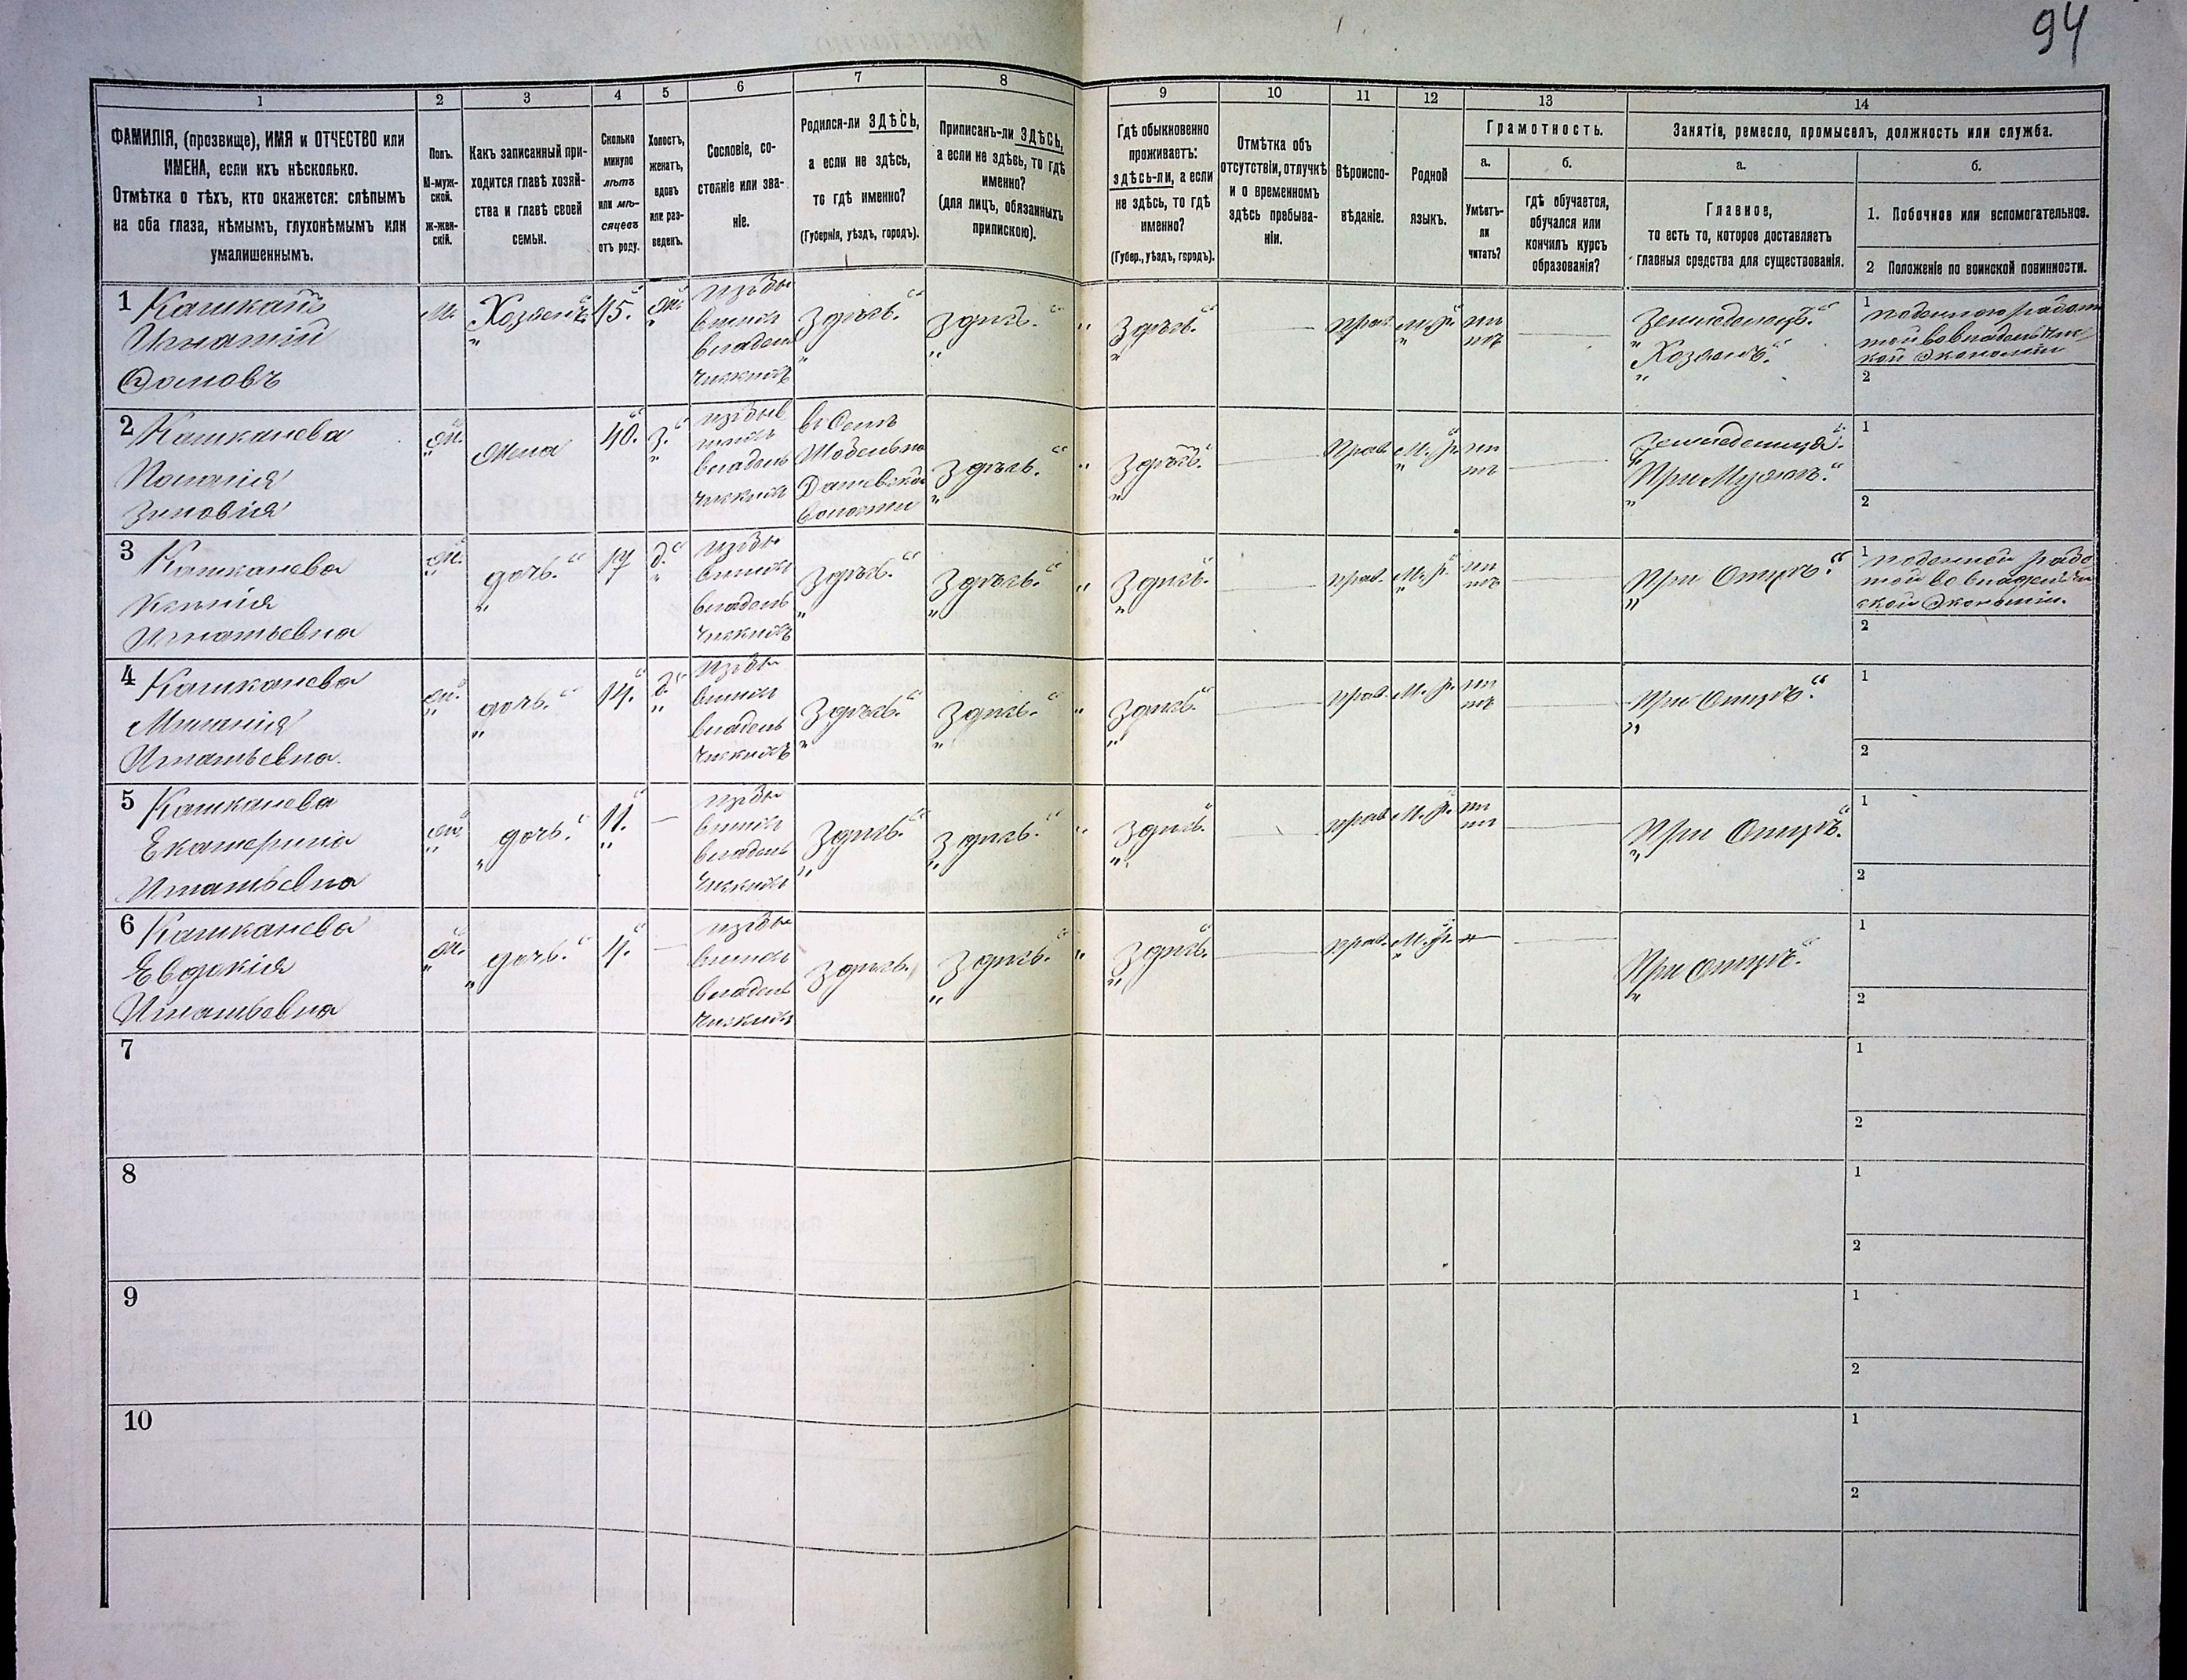 94
1
2
3
4
5
6
7
8
9
10
11
12
13
14
ФАМИЛІЯ, (прозвище), ИМЯ и ОТЧЕСТВО или
ИМЕНА, если ихъ нѣсколько.
Отмѣтка о тѣхъ, кто окажется: слѣпымъ
на оба глаза, нѣмымъ, глухонѣмымъ или
умалишеннымъ.
Полъ.
М-муж-
ской.
Ж-жен-
скій.
Какъ записанный при-
ходится главѣ хозяй-
ства и главѣ своей
семьи.
Сколько
минуло
лѣтъ
или мѣ-
сяцевъ
отъ роду.
Холостъ,
женатъ,
вдовъ
или раз-
веденъ.
Сословіе, со-
стояніе или зва-
ніе.
Родился-ли ЗДѢСЬ,
а если не здѣсь,
то гдѣ именно?
(Губернія, уѣздъ, городъ).
Приписанъ-ли ЗДѢСЬ,
а если не здѣсь, то гдѣ
именно?
(для лицъ, обязанныхъ
припискою).
Гдѣ обыкновенно
проживаетъ:
здѣсь-ли, а если
не здѣсь, то гдѣ
именно?
(Губер., уѣздъ, городъ).
Отмѣтка объ
отсутствіи, отлучкѣ
и о временномъ
здѣсь пребыва-
ніи.
Вѣроиспо-
вѣданіе.
Родной
языкъ.
Грамотность.
а.
б.
Умѣетъ-
ли
читать?
гдѣ обучается,
обучался или
кончилъ курсъ
образованія?
Занятіе, ремесло, промыселъ, должность или служба.
а.
б.
Главное,
то есть то, которое доставляетъ
главныя средства для существованія.
1. Побочное или вспомогательное.
2 Положеніе по воинской повинности.
1 Кашкан
Игнатій
м.
Хозяинъ
45.
ж.
изъ бы
вших
владель
ческихъ
здѣсь.
здѣсь.
здѣсь.
прав.
м. р.
не
тъ
Земледелецъ.
Хозяинъ.
1 поденною работ
той во владельчес
кой Экономіи
2
2 Кашканева
Зиновія
ж.
жена
40.
з.
изъ быв
ших
владель
ческих
въ Селѣ
Дашевской
волости
здѣсь.
здѣсь.
Прав.
М. р.
не
тъ
Земледелица.
При Мужѣ.
1
2
3 Кашканева
Ксенія
Игнатьевна
ж.
дочь.
17
д.
изъ бы
вших
владель
ческихъ
здѣсь.
здѣсь.
здѣсь.
прав.
М. р.
не
тъ
При Отцѣ.
1 поденной рабо
той во владельче
ской Экономіи.
2
4 Кашканева
Миланія
Игнатьевна.
ж.
дочь.
14.
д.
изъ бы
вших
владель
ческихъ
здѣсь.
здѣсь.
здѣсь.
прав.
М. р.
не
тъ
При Отцѣ.
1
2
5 Кашканева
Екатерина
Игнатьевна
ж.
дочь.
11.
изъ бы
вших
владель
ческих
здѣсь.
здѣсь.
здѣсь.
прав.
М. р.
не
тъ
При Отцѣ.
1
2
6 Кашканева
Евдокія
Игнатьевна
ж.
дочь.
4.
изъ бы
вших
владель
ческих
здѣсь.
здѣсь.
здѣсь.
прав.
М. р.
При отцѣ.
1
2
7
1
2
8
1
2
9
1
2
10
1
2